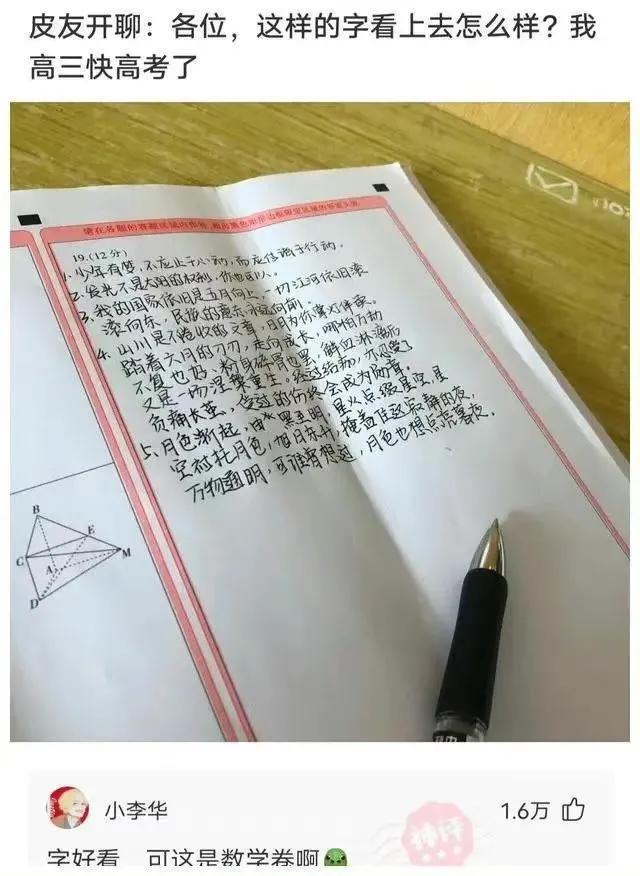 皮友开聊：各位，这样的字看上去怎么样？我
高三快高考了
请在各题的答题区域内作答，超出黑色矩形边框限定区域的答案无效
19.(12分)
1.少年有梦，不应止于心动，而应付诸于行动。
2.发光不是太阳的权利，你也可以。
3.我的国家依旧是五月向上，一切江河依旧滚
滚向东，民族的意志永远向前。
4.山川是不卷收的文章，日月为你掌灯伴读。
踏着六月的刀刃，走向成长，哪怕万劫
不复也好，粉身碎骨也罢，鲜血淋漓后
又是一场涅槃重生。
负痛长茧，受过的伤终会成为勋章。
5.月色渐起，由 黑至明，星火点缀星空，星
空衬托月色，旭日东升，掩盖住这寂静的夜，
万物通明，可谁曾想过，月色也想点亮暮夜。
B
E
C
A
M
D
小李华
1.6万
字好看，可这是数学卷啊
神评